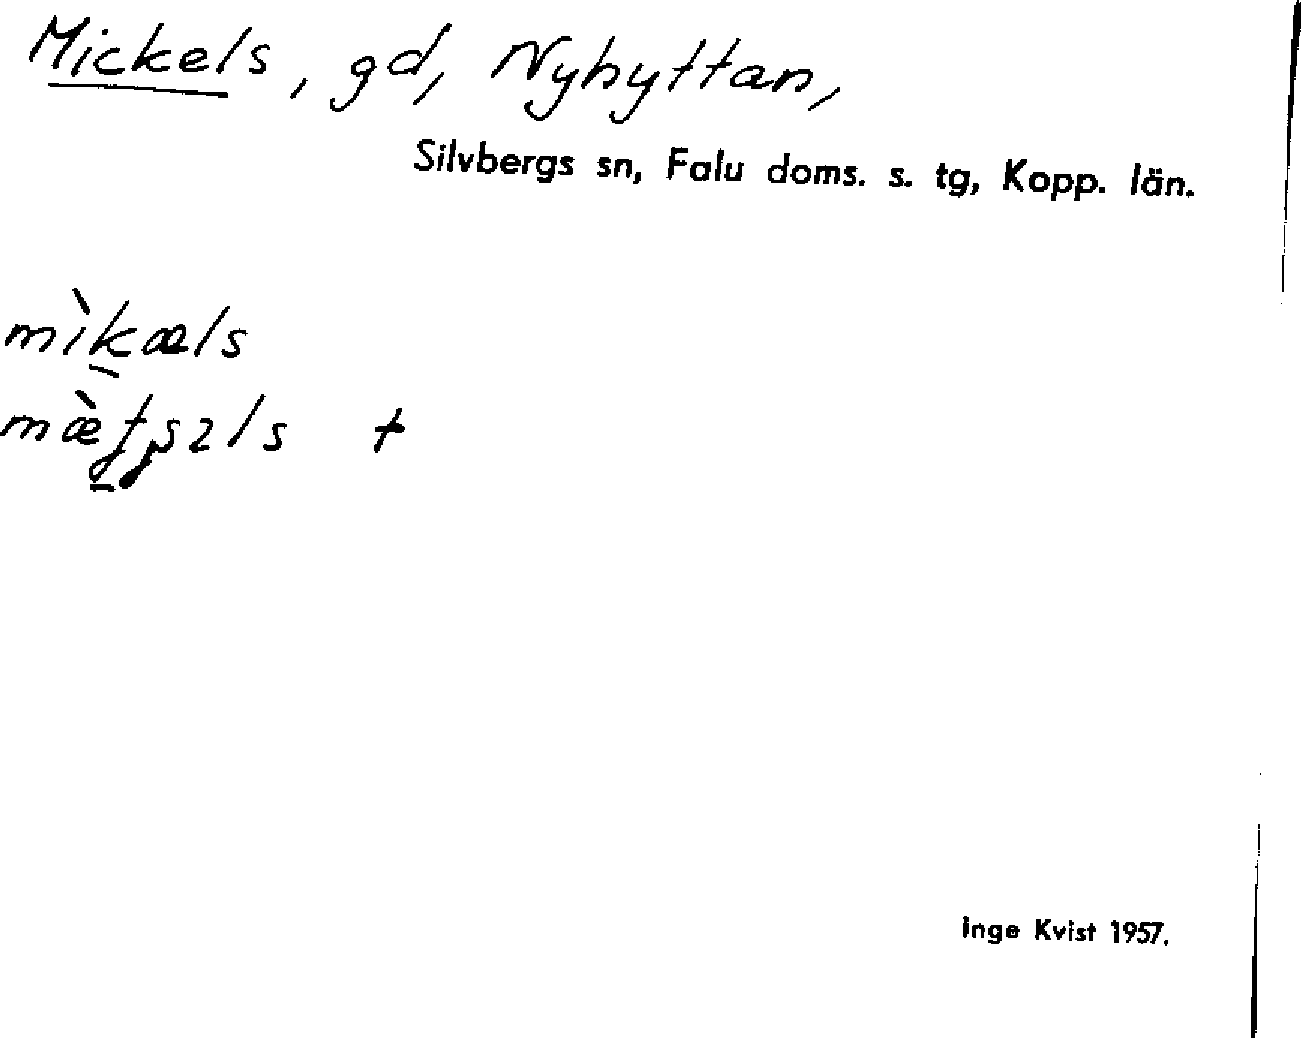 Mickels, gd, Nyhyttan,
Silvbergs sn, Falu doms. s. tg, Kopp. län.
mìkæls
+
Inge Kvist 1957.